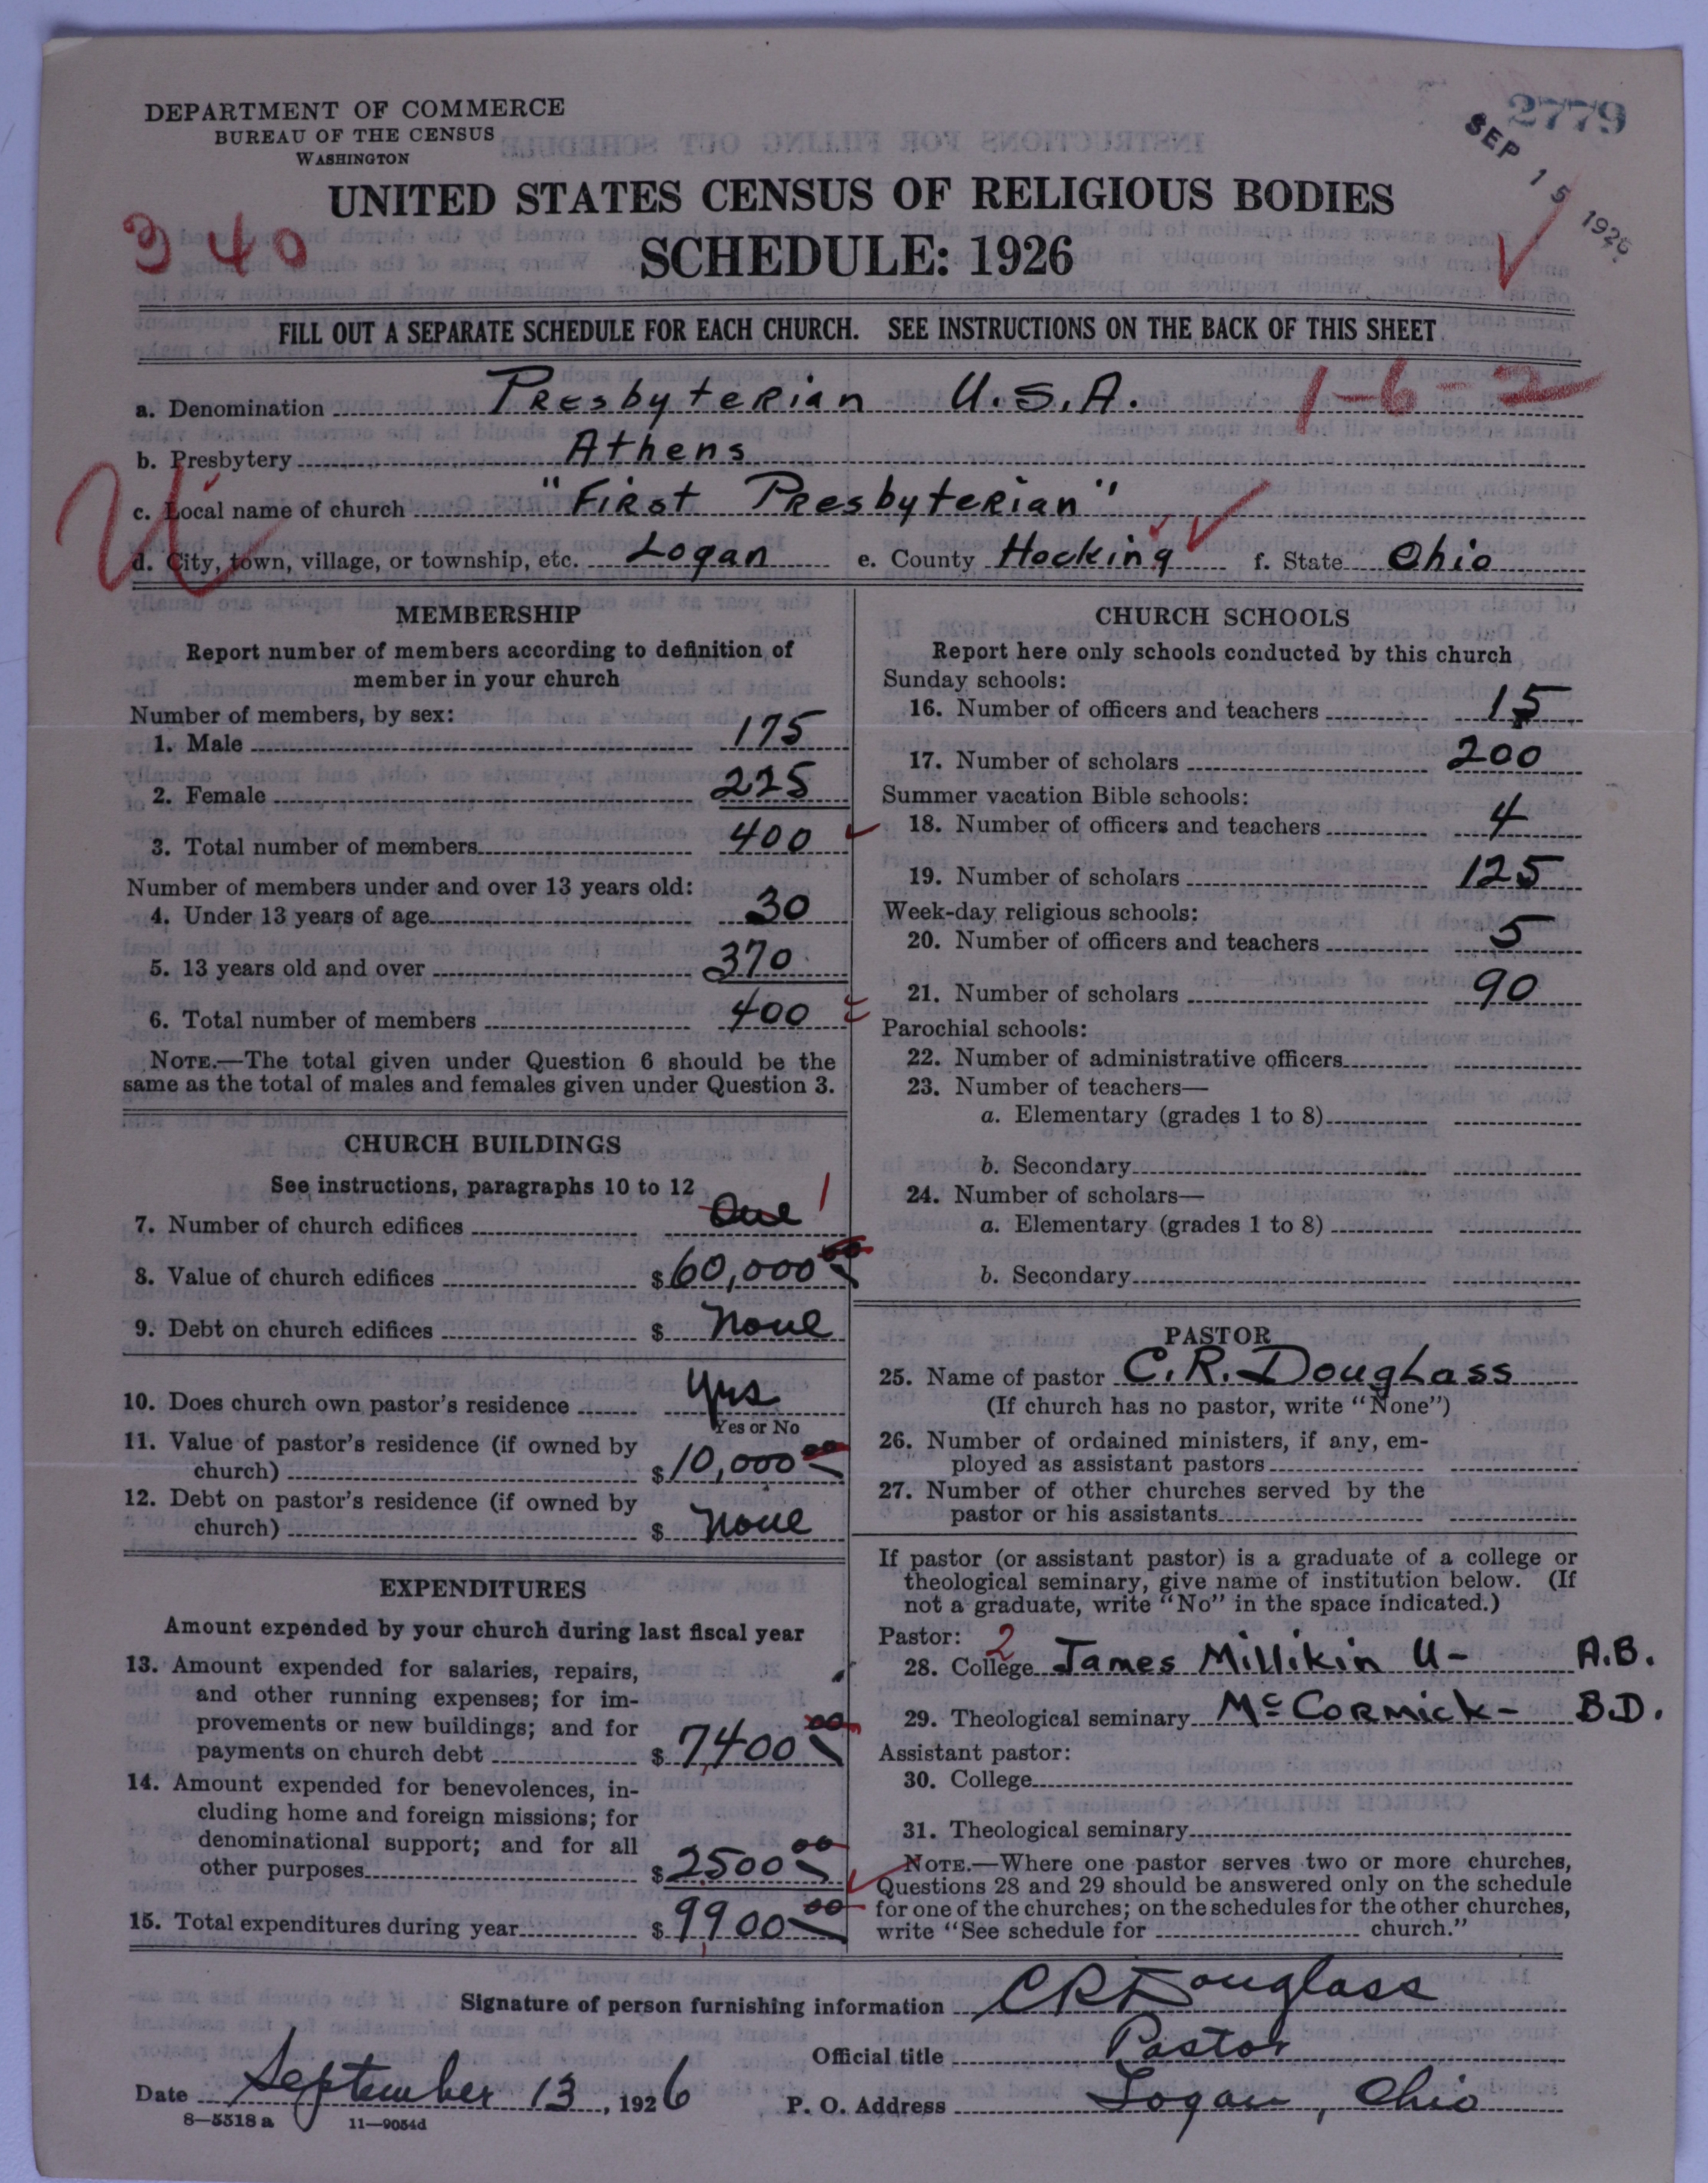 2779
SEP 15 1926
DEPARTMENT OF COMMERCE
BUREAU OF THE CENSUS
WASHINGTON
UNITED STATES CENSUS OF RELIGIOUS BODIES
340
SCHEDULE: 1926
FILL OUT A SEPARATE SCHEDULE FOR EACH CHURCH. SEE INSTRUCTIONS ON THE BACK OF THIS SHEET
a. Denomination Presbyterian U.S.A. 1-6-2
b. Presbytery Athens
c. Local name of church "First Presbyterian"
d. City, town, village, or township, etc. Logan e. County Hocking f. State Ohio
MEMBERSHIP
Report number of members according to definition of
member in your church
Number of members, by sex:
1. Male 175
2. Female 225
3. Total number of members 400
Number of members under and over 13 years old:
4. Under 13 years of age 30
5. 13 years old and over 370
6. Total number of members 400
NOTE.—The total given under Question 6 should be the
same as the total of males and females given under Question 3.
CHURCH BUILDINGS
See instructions, paragraphs 10 to 12
7. Number of church edifices One 1
8. Value of church edifices $60,000 00
9. Debt on church edifices $ None
10. Does church own pastor's residence Yes
Yes or No
11. Value of pastor's residence (if owned by
church) $10,000 00
12. Debt on pastor's residence (if owned by
church) $ None
EXPENDITURES
Amount expended by your church during last fiscal year
13. Amount expended for salaries, repairs,
and other running expenses; for im-
provements or new buildings; and for
payments on church debt $7400 00
14. Amount expended for benevolences, in-
cluding home and foreign missions; for
denominational support; and for all
other purposes $2500 00
15. Total expenditures during year $9900 00
CHURCH SCHOOLS
Report here only schools conducted by this church
Sunday schools:
16. Number of officers and teachers 15
17. Number of scholars 200
Summer vacation Bible schools:
18. Number of officers and teachers 4
19. Number of scholars 125
Week-day religious schools:
20. Number of officers and teachers 5
21. Number of scholars 90
Parochial schools:
22. Number of administrative officers
23. Number of teachers—
a. Elementary (grades 1 to 8)
b. Secondary
24. Number of scholars—
a. Elementary (grades 1 to 8)
b. Secondary
PASTOR
25. Name of pastor C. R. Douglass
(If church has no pastor, write "None")
26. Number of ordained ministers, if any, em-
ployed as assistant pastors
27. Number of other churches served by the
pastor or his assistants
If pastor (or assistant pastor) is a graduate of a college or
theological seminary, give name of institution below. (If
not a graduate, write "No" in the space indicated.)
Pastor: 2
28. College James Millikin U- A.B.
29. Theological seminary McCormick- B.D.
Assistant pastor:
30. College
31. Theological seminary
NOTE.—Where one pastor serves two or more churches,
Questions 28 and 29 should be answered only on the schedule
for one of the churches; on the schedules for the other churches,
write "See schedule for church."
Signature of person furnishing information CR Douglass
Official title Pastor
Date September 13, 1926 P. O. Address Logan, Ohio
8—5518 a 11—9054d